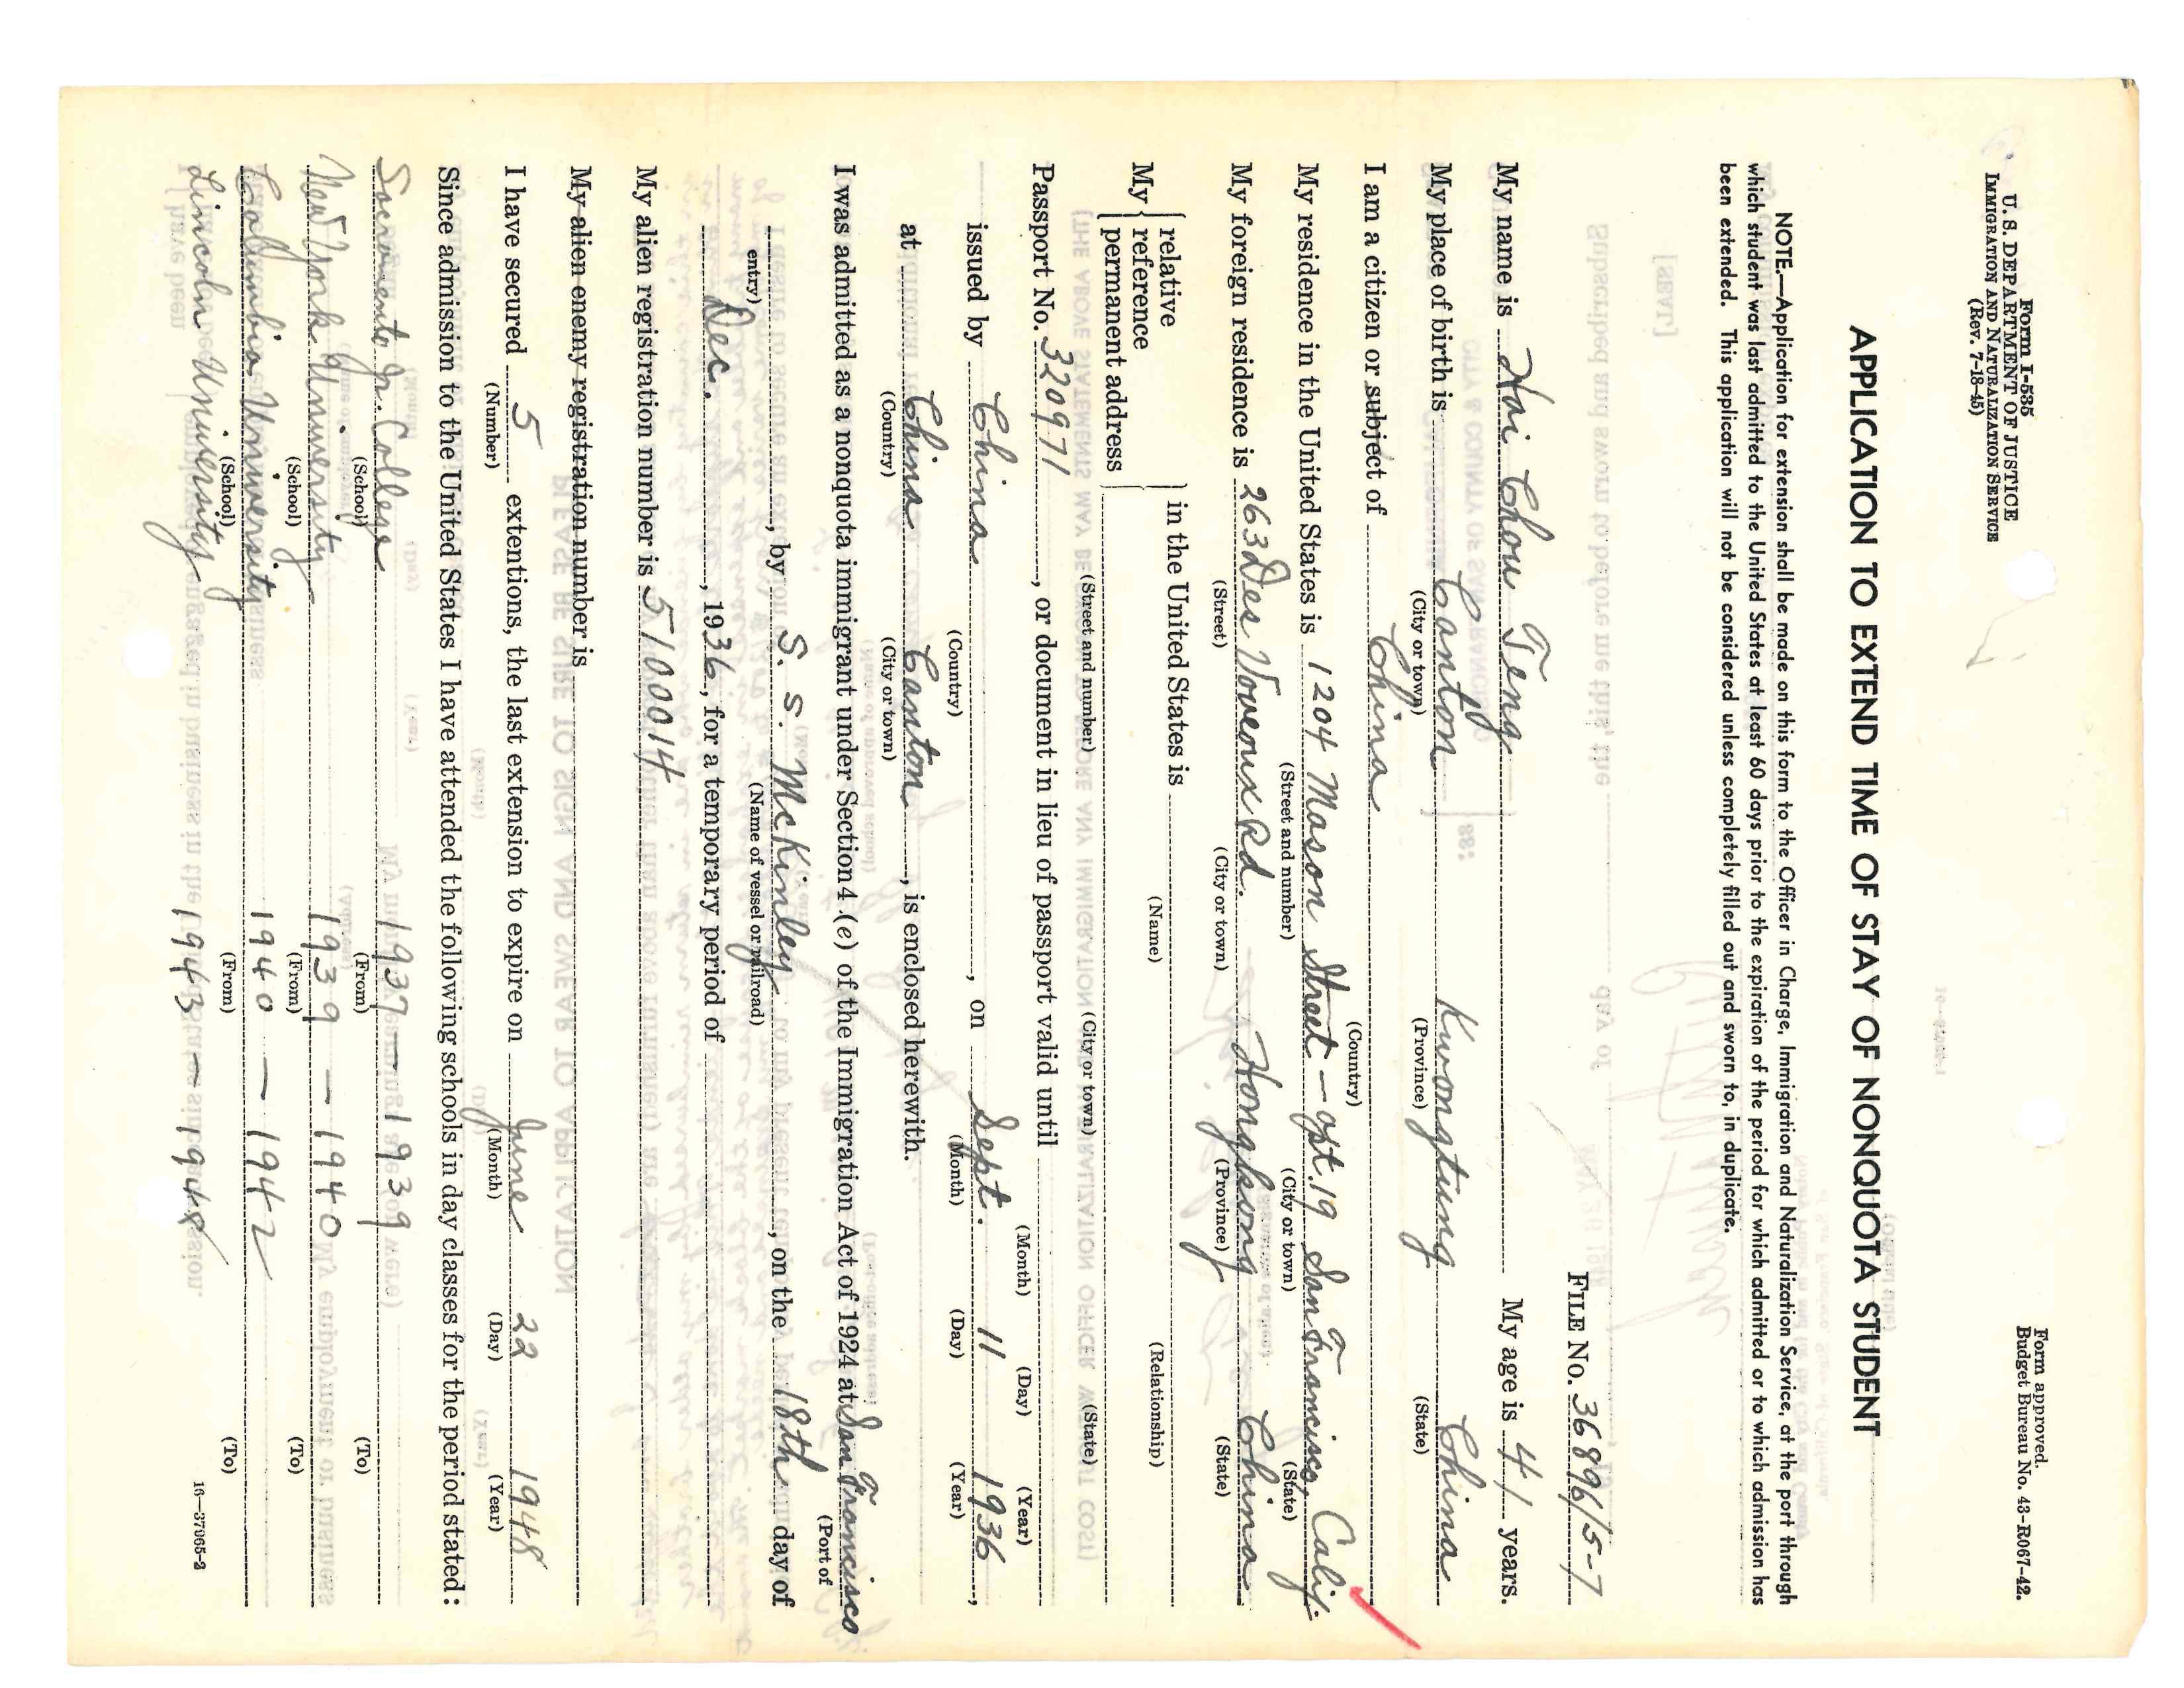 Form I-535
U. S. DEPARTMENT OF JUSTICE
IMMIGRATION AND NATURALIZATION SERVICE
(Rev. 7-18-45)
Form approved.
Budget Bureau No. 43-R067-42.
APPLICATION TO EXTEND TIME OF STAY OF NONQUOTA STUDENT
NOTE.—Application for extension shall be made on this form to the Officer in Charge, Immigration and Naturalization Service, at the port through
which student was last admitted to the United States at least 60 days prior to the expiration of the period for which admitted or to which admission has
been extended. This application will not be considered unless completely filled out and sworn to, in duplicate.
FILE No. 36896/5-7
My name is Hai Chou Teng My age is 41 years.
My place of birth is Canton Kwongtung China
(City or town) (Province) (State)
I am a citizen or subject of China
(Country)
My residence in the United States is 1204 Mason Street - apt. 19 San Francisco, Calif.
(Street and number) (City or town) (State)
My foreign residence is 263 Des Voveoux Rd. Hongkong China
(Street) (City or town) (Province) (State)
My relative reference permanent address in the United States is
(Name) (Relationship)
(Street and number) (City or town) (State)
Passport No. 320971, or document in lieu of passport valid until
(Month) (Day) (Year)
issued by China, on Sept. 11 1936,
(Country) (Month) (Day) (Year)
at China Canton, is enclosed herewith.
(Country) (City or town)
I was admitted as a nonquota immigrant under Section 4 (e) of the Immigration Act of 1924 at San Francisco
(Port of
, by S. S. McKinley, on the 18th day of
entry) (Name of vessel or railroad)
Dec., 1936, for a temporary period of
My alien registration number is 5100014
My alien enemy registration number is
I have secured 5 extentions, the last extension to expire on June 22 1948
(Number) (Month) (Day) (Year)
Since admission to the United States I have attended the following schools in day classes for the period stated:
Sacramento Jr. College 1937 — 1939
(School) (From) (To)
New York University 1939 — 1940
(School) (From) (To)
Columbia University 1940 — 1942
(School) (From) (To)
Lincoln University 1943 — 1948
16—37965-2